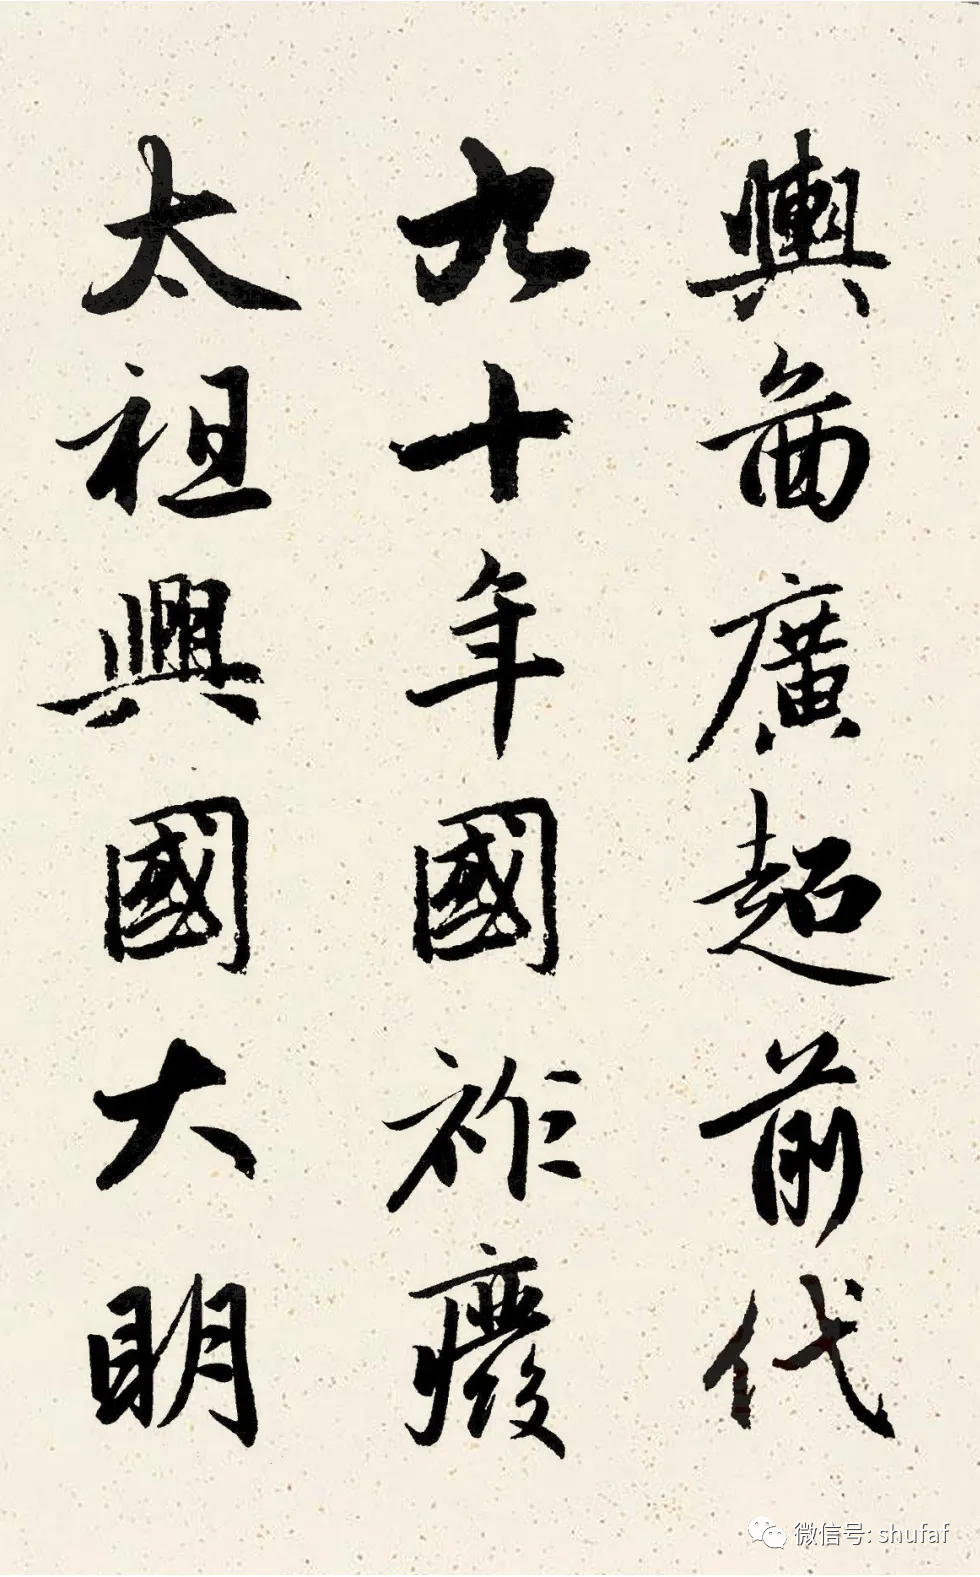 輿圖廣超前代
九十年國祚癈
太祖興國大明
微信号: shufaf